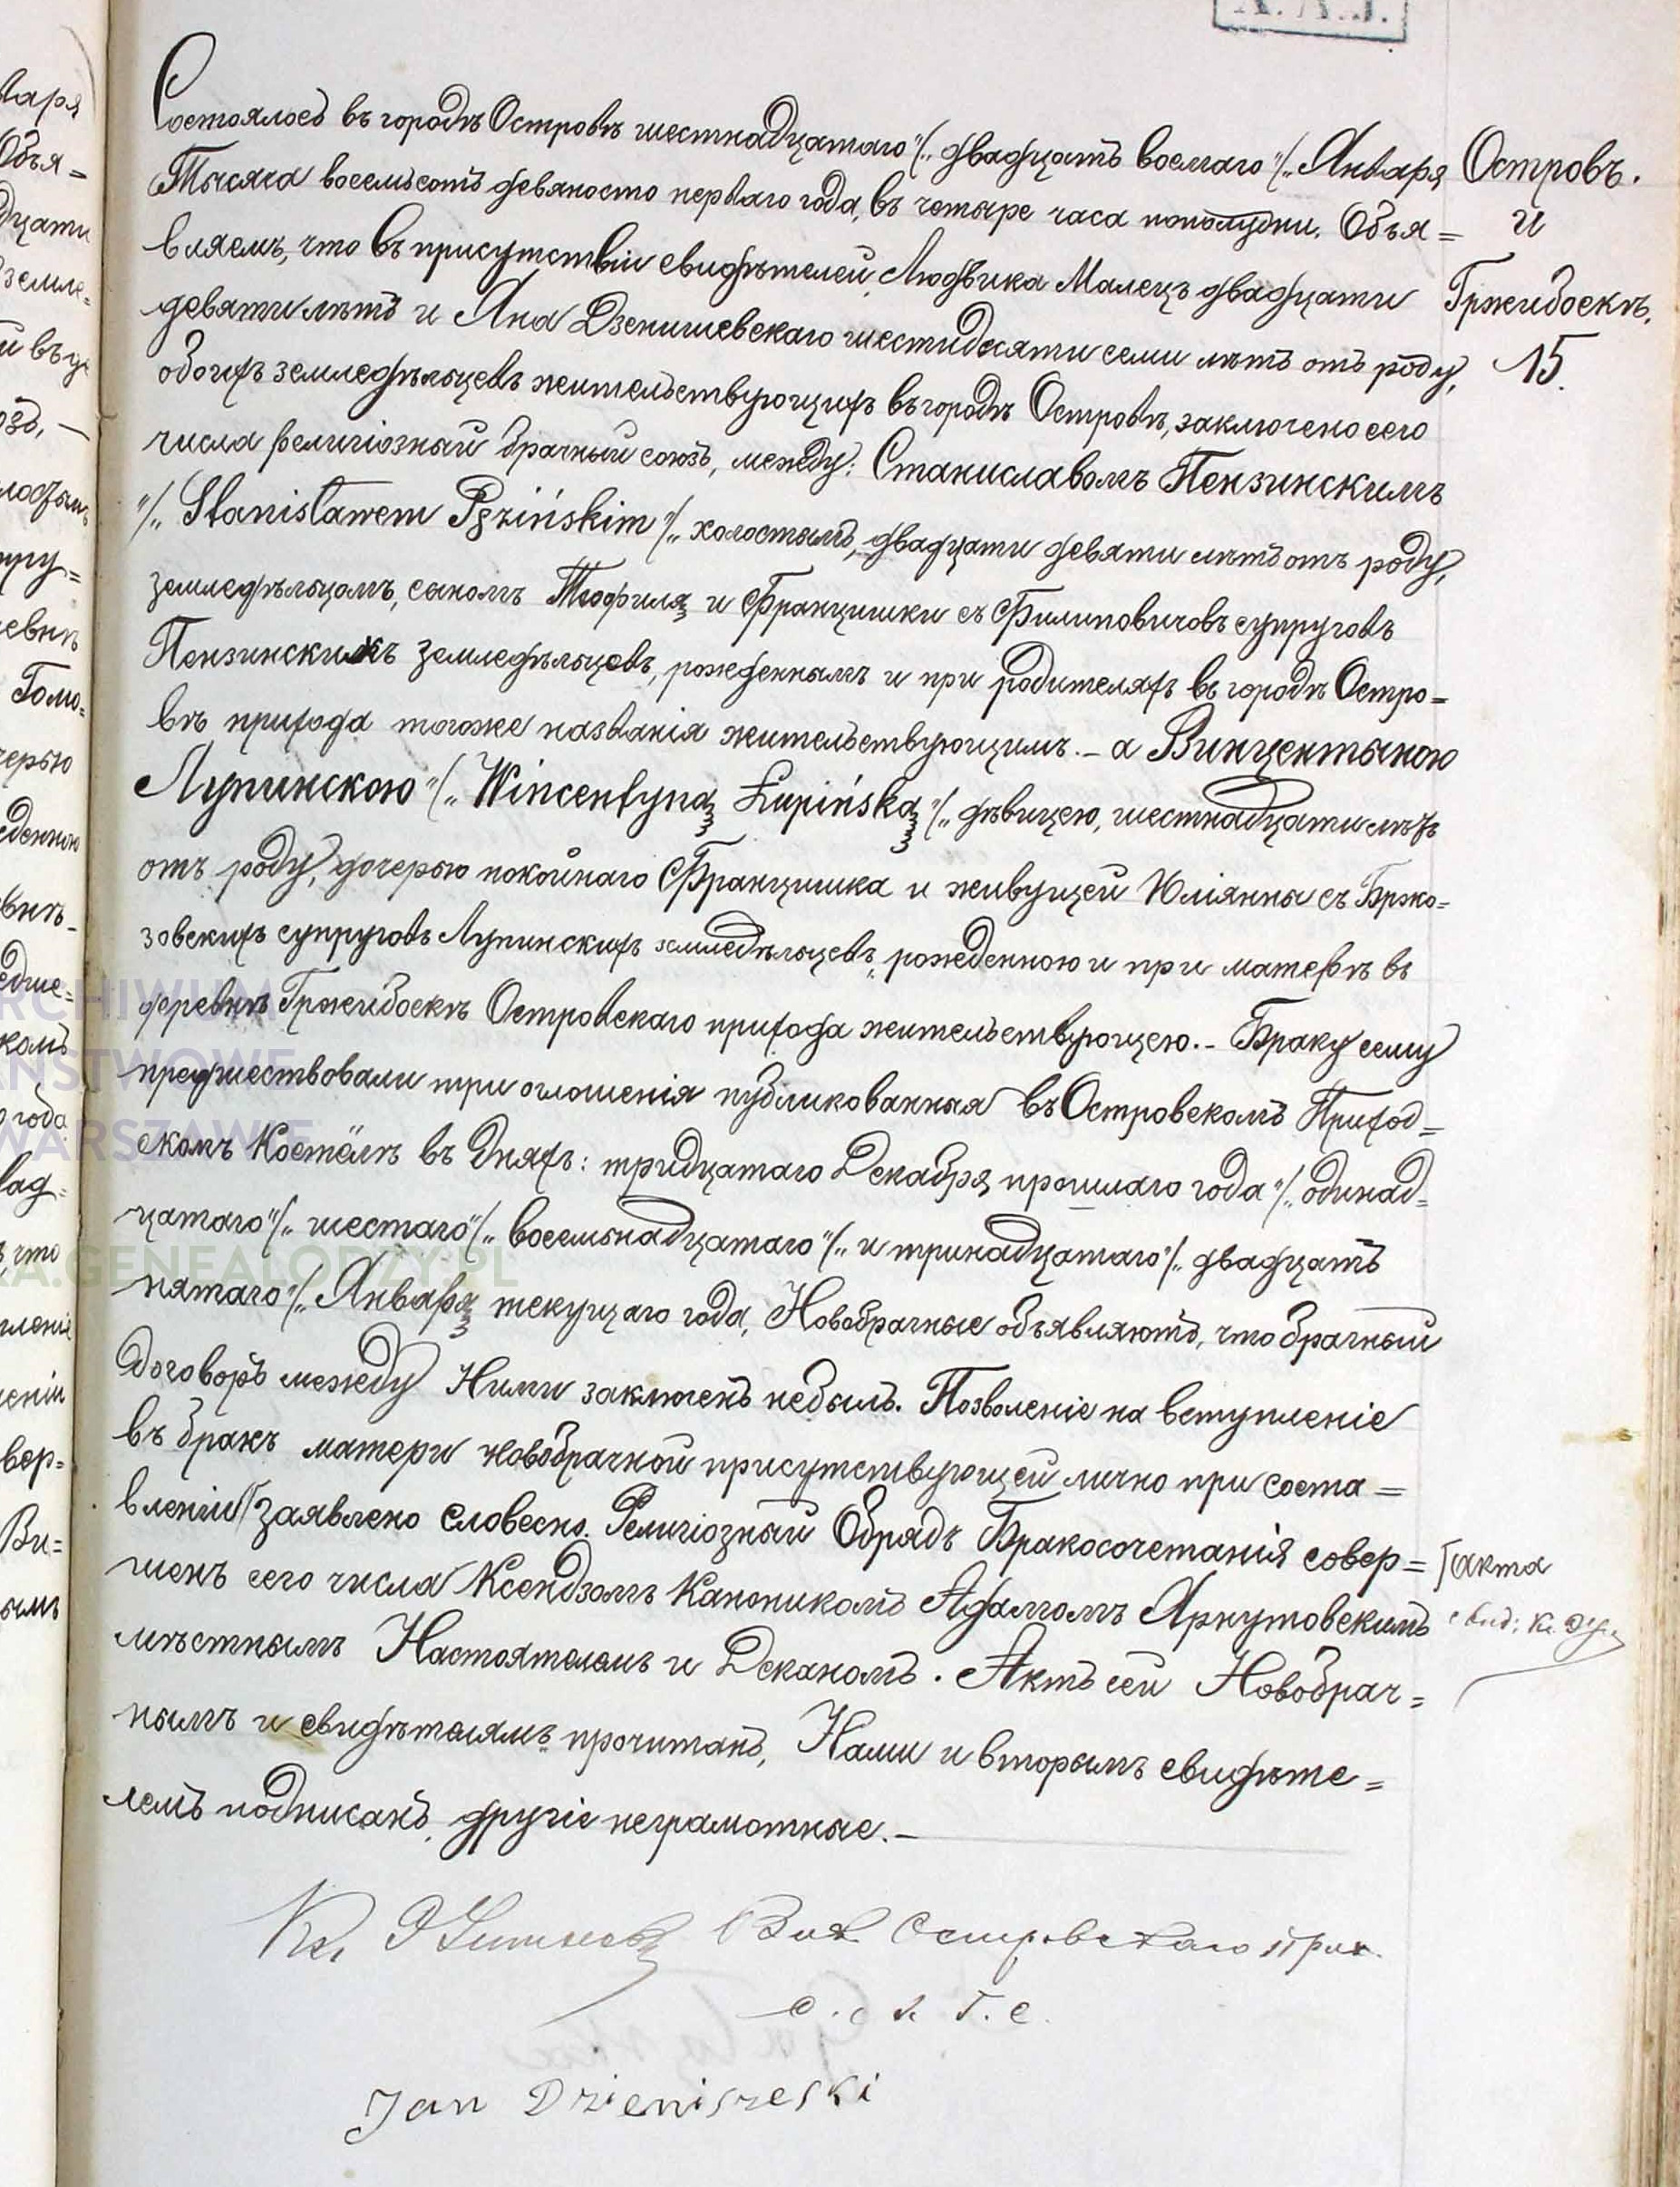 Состоялось въ городѣ Островѣ шестнадцатаго "/„ двадцать восмаго "/„ Января
Тысяча восемьсотъ девяносто перваго года, въ четыре часа пополудни. Объя=
вляемъ, что въ присутствіи свидѣтелей, Людвика Малецъ двадцати
девяти лѣтъ и Яна Дзенишевскаго шестидесяти семи лѣтъ отъ роду,
обоихъ земледѣльцевъ жительствующихъ въ городѣ Островѣ, заключено сего
числа религіозный брачный союзъ, между: Станиславомъ Пензинскимъ
"/„ Stanisławem Pęzińskim "/„ холостымъ, двадцати девяти лѣтъ отъ роду,
земледѣльцомъ, сыномъ Теофиля и Францишки съ Филиповичовъ супруговъ
Пензинскихъ земледѣльцовъ, рожденнымъ и при родителяхъ въ городѣ Остро=
вѣ прихода тогоже названія жительствующимъ. – а Винцентыною
Лупинскою "/„ Wincentyną Łupińską "/„ дѣвицею, шестнадцати лѣтъ
отъ роду, дочерью покойнаго Францишка и живущей Юліянны съ Бржо=
зовскихъ супруговъ Лупинскихъ земледѣльцевъ, рожденною и при матерѣ въ
деревнѣ Гржибоскѣ Островскаго прихода жительствующею. – Браку сему
предшествовали три оглошенія публикованныя въ Островскомъ Приход=
скомъ Костёлѣ въ Дняхъ: тридцатаго Декабря прошлаго года "/„ одинад=
цатаго "/„ шестаго "/„ восемьнадцатаго "/„ и тринадцатаго "/„ двадцать
пятаго "/„ Января текущаго года, Новобрачные объявляютъ, что брачный
Договоръ между Ними заключенъ небылъ. Позволеніе на вступленіе
въ бракъ матери новобрачной присутствующей лично при соста=
вленіи Г заявлено словесно. Религіозный Обрядъ Бракосочетанія совер=
шенъ сего числа Ксендзомъ Каноникомъ Адамомъ Ярнутовскимъ
мѣстнымъ Настоятелемъ и Деканомъ. Актъ сей Новобрач=
нымъ и свидѣтелямъ прочитанъ, Нами и вторымъ свидѣте=
лемъ подписанъ, другіе неграмотные. –
Островъ.
и
Гржибоскѣ.
15.
Г акта
Кс. Вик. Островскаго Прих.
Jan Dzieniszeski